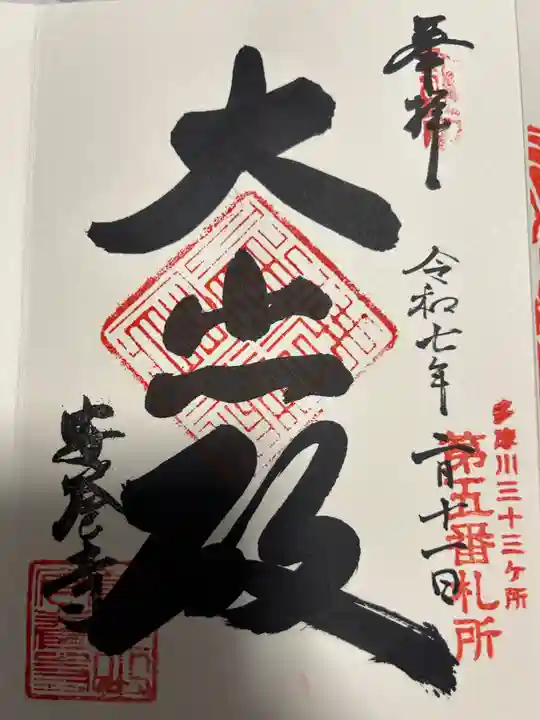 奉拝
令和七年二月十一日
多摩川三十三ヶ所
第五番札所
大悲殿
安養寺